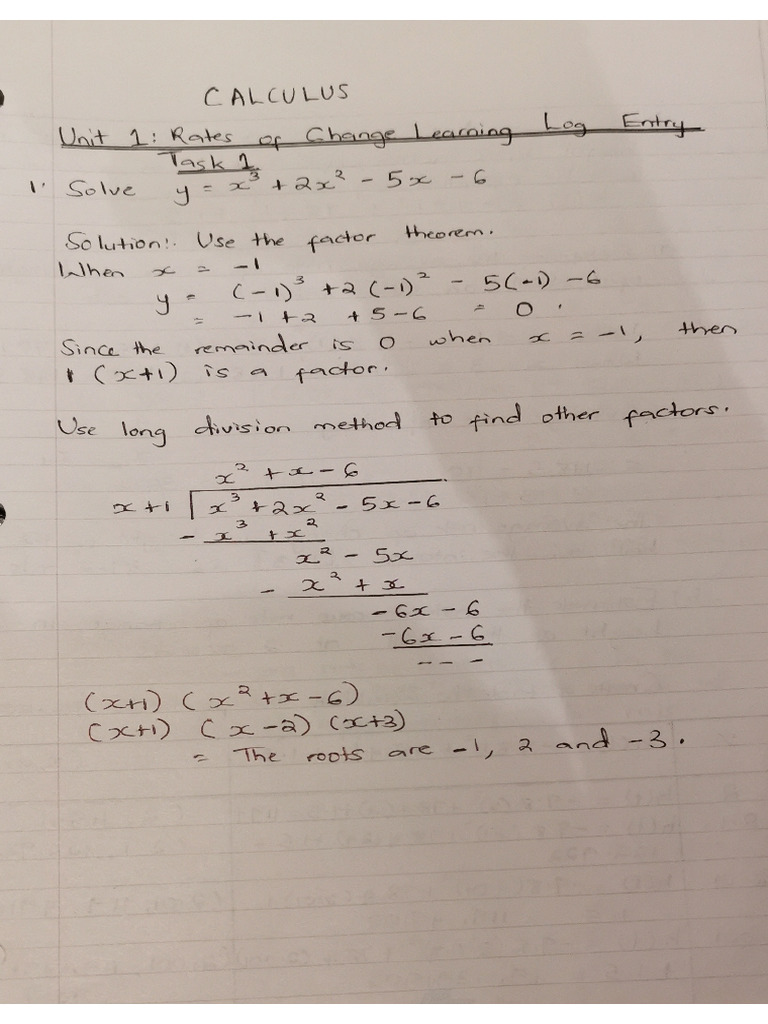 CALCULUS
Unit 1: Rates of Change Learning Log Entry
Task 1
1. Solve y = x³ + 2x² - 5x - 6
Solution:. Use the factor theorem.
When x = -1
y = (-1)³ + 2(-1)² - 5(-1) - 6
= -1 + 2 + 5 - 6 = 0.
Since the remainder is 0 when x = -1, then
(x+1) is a factor.
Use long division method to find other factors.
x² + x - 6
x + 1 | x³ + 2x² - 5x - 6
- x³ + x²
x² - 5x
- x² + x
-6x - 6
-6x - 6
- - -
(x+1) (x² + x - 6)
(x+1) (x - 2) (x+3)
= The roots are -1, 2 and -3.